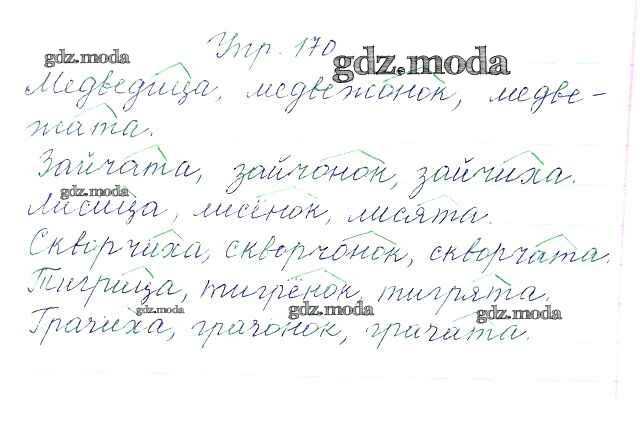 gdz.moda
Упр. 170
gdz.moda
Медведица, медвежонок, медве-
жата.
Зайчата, зайчонок, зайчиха.
gdz.moda
Лисица, лисёнок, лисята.
Скворчиха, скворчонок, скворчата.
Тигрица, тигрёнок, тигрята.
gdz.moda gdz.moda gdz.moda
Грачиха, грачонок, грачата.